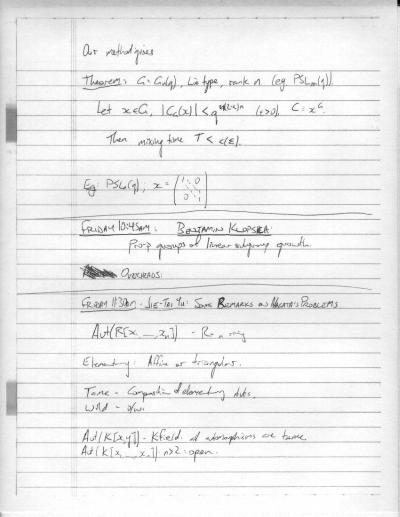 Our method gives
Theorem: G = Gn(q), Lie type, rank n (eg PSLn(q))
Let x ∈ G, |CG(x)| < q^(2-ε)n (ε>0). C = x^G.
Then mixing time T < c(ε).
Eg: PSLn(q); x = (1 0 0 1)
FRIDAY 10:45AM: BENJAMIN KLOPSCH:
Pro-p groups of linear subgroup growth.
OVERHEADS:
FRIDAY 11:30AM - JIE-TAI YU: SOME REMARKS ON NAGATA'S PROBLEMS
Aut(R[x, __, xn]) - R a ring
Elementary: Affine or triangular.
Tame - Composition of elementary auts.
Wild - o/w.
Aut(K[x,y]) - K field: all automorphisms are tame.
Aut(K[x, __, xn]) n>2: open.